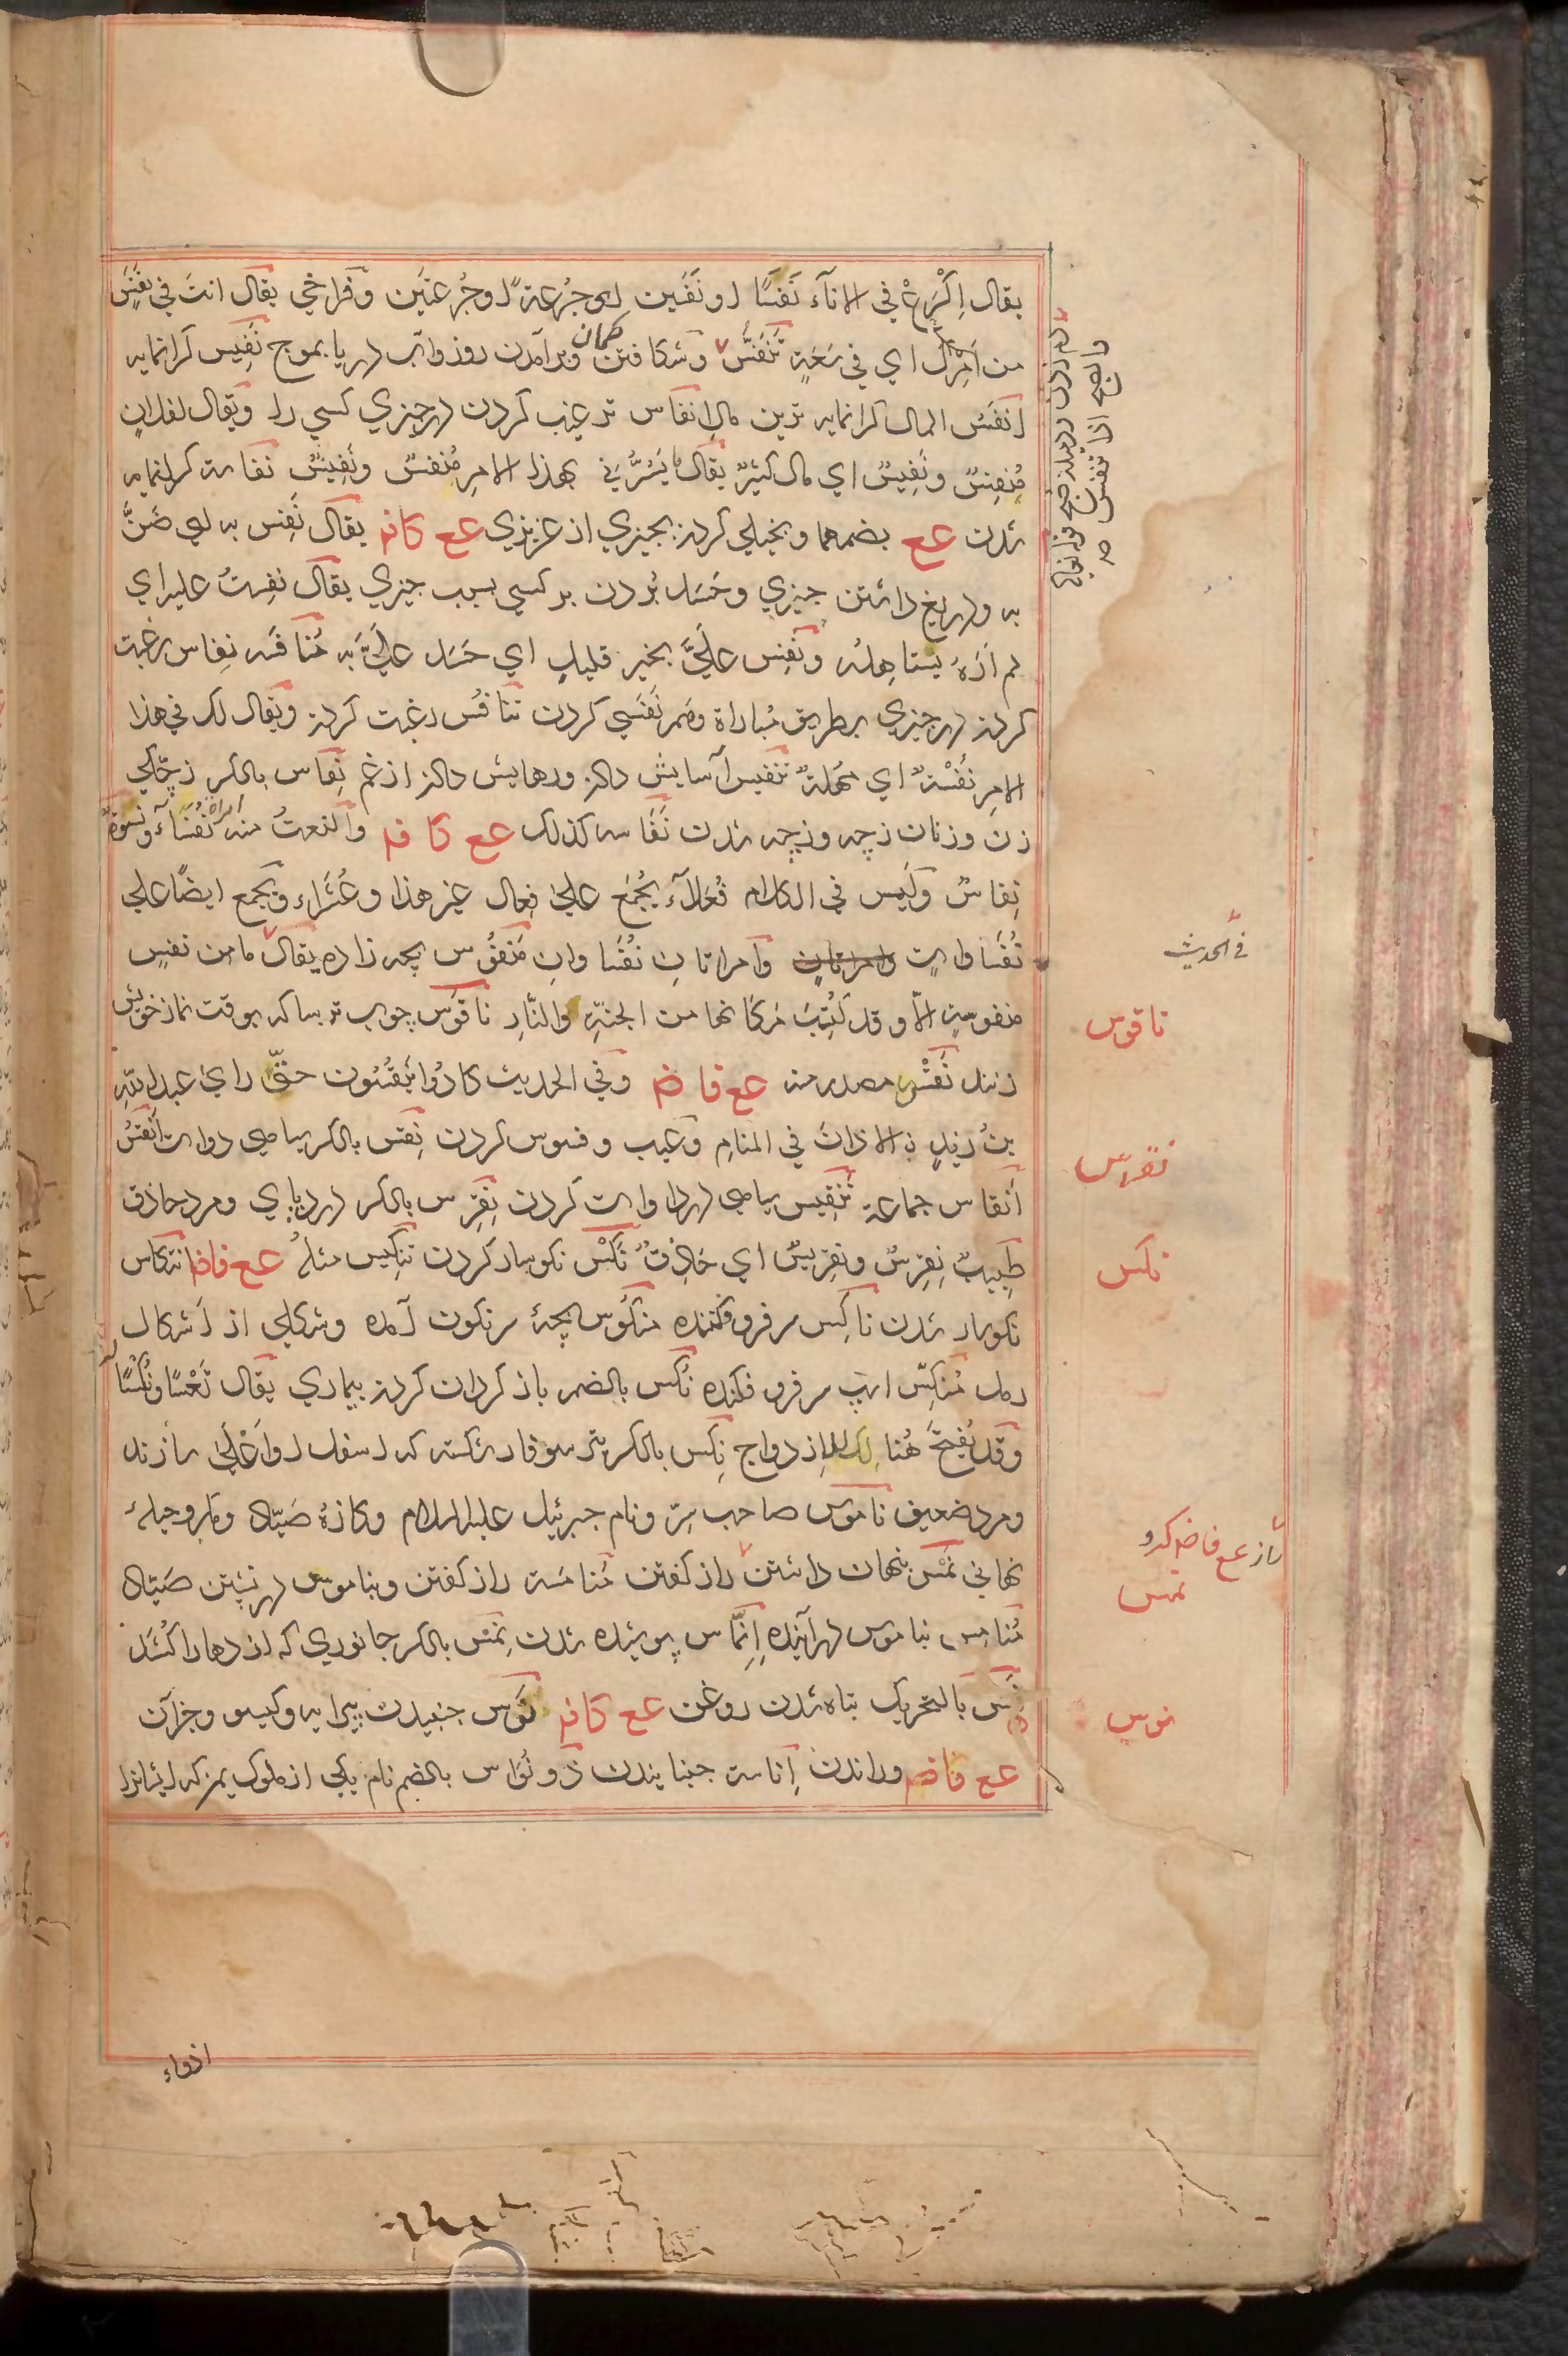 يقال اِكْرَعْ في الاناَء نَفَسًا او نَفَسَين اي جُرعةً او جُرعتَين وفراخي يقال انتَ في نَفَسٍ
من اَمْرِكَ اي في سَعَةٍ تَنَفُّسْ وشكافتن كمان وبرآمدن روز وآب دريا بموج نَفِيس كرانمايه
اَنفَسُ المال كرانمايه ترين مال اِنفاس ترغيب كردن در چيزي كسي را ويقال لفلانٍ
مُنفِسٌ ونَفِيسٌ اي مال كثيرٌ يقال ما يَسُرُّني بهذا الامرِ مُنفِسٌ ونَفِيسٌ نفاسة كرانمايه
شدن عع بضمهما وبخيلي كردن بچيزي از عزيزي عع كافم يقال نَفِس به اي ضَنَّ
به ودريغ داشتن چيزي وحَسَد بُردن بر كسي بسبب چيزي يقال نفِستُ عليه اي
لم اَرَهُ يستاهله ونَفِس عَلَيَّ بخيرٍ قليلٍ اي حَسَد عَلَيَّ به مُنافَسه نِفاس رغبت
كردن در چيزي بر طريق مُباراة وهم نَفَسي كردن تنافُس رغبت كردن ويقال لك في هذا
الامرِ نُفْسةٌ اي مُهلةٌ تنفيس آسايش دادن ورهايش دادن از غم نِفاس بالكسر زچكي
زن وزنان زچه وزچه شدن نَفاسه كذلك عع كافم والنعتُ منه امراة نُفَسَآءُ ونسوةٌ
نِفاسٌ ولَيس في الكلام فُعَلآء يُجمَع علي فِعال غير هذا وعُشَراء ويُجمع ايضًا علي
نُفَساوات وامراتانِ وامراتانِ نُفَساوانِ مَنفوُس بچه زاده يقال ما من نفسٍ
منفوسةٍ الّا وقد كُتِبَ مَكانها من الجنةِ والنّارِ ناقوُس چوب ترسا كه بوقت نماز خويش
زنند نَقْس مصدر منه عع فاضم وفي الحديث كادُوا يَنقُسُون حتّي راي عبدالله
بنُ زيدٍ الاذانَ في المنامِ وعَيب وفسوس كردن نِقس بالكسر سياهي دوات اَنقُسُ
اَنقاس جماعة تنقيس سياهي در دوات كردن نِقرِس بالكسر درد پاي ومرد حاذق
طَبيبٌ نِقرِسٌ ونِقريسٌ اي حَاذِقٌ نَكْس نكوسار كردن تنكيس مثله عع فاضم انتكاس
نكوسار شدن ناكِس سر فرو فكننده منكوُس بچهٔ سرنكون آمده وشكلي از اَشكال
رمل مُنكِّس اسپ سر فرو فكنده نُكس بالضم باز كردان كردن بيماري يقال تَعْسًا ونُكسًا
وقد يُفتح هُنا لك للازدواج نِكس بالكسر تير سوفار شكسته كه اسفل او اعلي سازند
ومرد ضعيف ناموُس صاحب سِرّ ونام جبرئيل عليه السلام وكازهٔ صَيّاد ومكر وحيلهٔ
نهاني نَمْس پنهان داشتن راز كفتن مُنامَسة راز كفتن وبناموس در نشستن صَيّاد
مُنامِس بناموس درآينده اِنِّماس پوشيده شدن نِمس بالكسر جانوري كه اژدها را كُشَد
نَمَس بالتحريك تباه شدن روغن عع كافم نَوَس جنبيدن پيرايه وكيسو وجزآن
عع فاضم وراندن اِناسة جنبانيدن ذو نُوَاس بالضم نام يكي از ملوك يمن كه ايشانرا
دم زدن
والصبح اذا تنفس
في الحديث
ناقوس
نقرس
نكس
راز عع فاضم كردو
نمس
نوس
اذواء